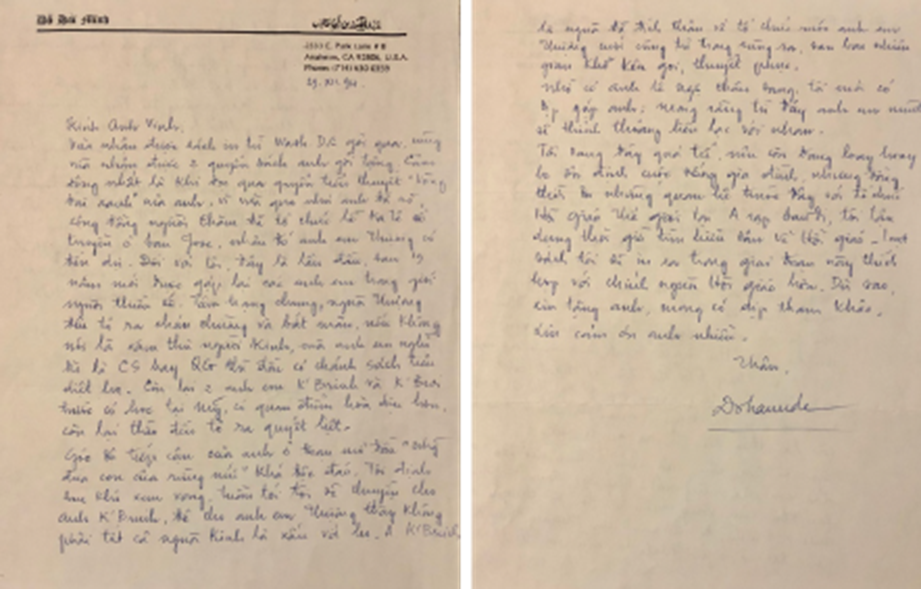 Đỗ Hải Minh
2333 E. Park Lane # B
Anaheim, CA 92806, U.S.A.
Phone: (714) 630 6359
29. XII. 94
Kính Anh Vinh,
Vừa nhận được sách in từ Wash D.C gởi qua, cũng
vừa nhận được 2 quyển sách anh gởi tặng. Cảm
động nhất là khi đọc qua quyển tiểu thuyết "Vòng
đai xanh" của anh, vì
cộng đồng người Chàm đã tổ chức lễ Ka Tê cổ
truyền ở San Jose, nhân đó anh em Thượng có
đến dự. Đối với tôi, đây là lần đầu, sau 19
năm mới được gặp lại các anh em trong giới
người thiểu số. Tâm trạng chung, người Thượng
đều tỏ ra chán chường và bất mãn, nếu không
nói là căm thù người Kinh, mà anh em nghĩ
dù là CS hay QG thì đều có chánh sách tiêu
diệt họ. Còn lại 2 anh em K'Briuh và K'
trước có học tại Mỹ, có quan điểm hòa dịu hơn,
còn lại thảy đều tỏ ra quyết liệt.
Góc độ tiếp cận của anh ở tham mưu "những
đứa con của rừng núi" khá độc đáo. Tôi định
sau khi xem xong, tuần tới tôi sẽ chuyển cho
anh K'Briuh, để cho anh em Thượng thấy không
phải tất cả người Kinh là xấu với họ. A K'Briuh
là người đã đích thân về tổ chức mời anh em
Thượng cuối cùng từ trong rừng ra, sau bao nhiêu
gian khổ kêu gọi, thuyết phục.
Nhờ có anh Lê Ngộ Châu sang, tôi mới có
dịp gặp anh; mong rằng từ đây anh em mình
sẽ thỉnh thoảng liên lạc với nhau.
Tôi sang đây quá trễ, nên còn đang loay hoay
lo ổn định cuộc sống gia đình, nhưng đồng
thời do những quan hệ trước đây với tổ chức
Hồi giáo thế giới tại A rạp Saudi, tôi tận
dụng thời giờ tìm hiểu sâu về Hồi giáo
sách tôi đã in ra trong giai đoạn này thích
hợp với chính người Hồi giáo hơn. Dù sao,
xin tặng anh, mong có dịp tham khảo.
Xin cảm ơn anh nhiều.
Thân,
Dohamide